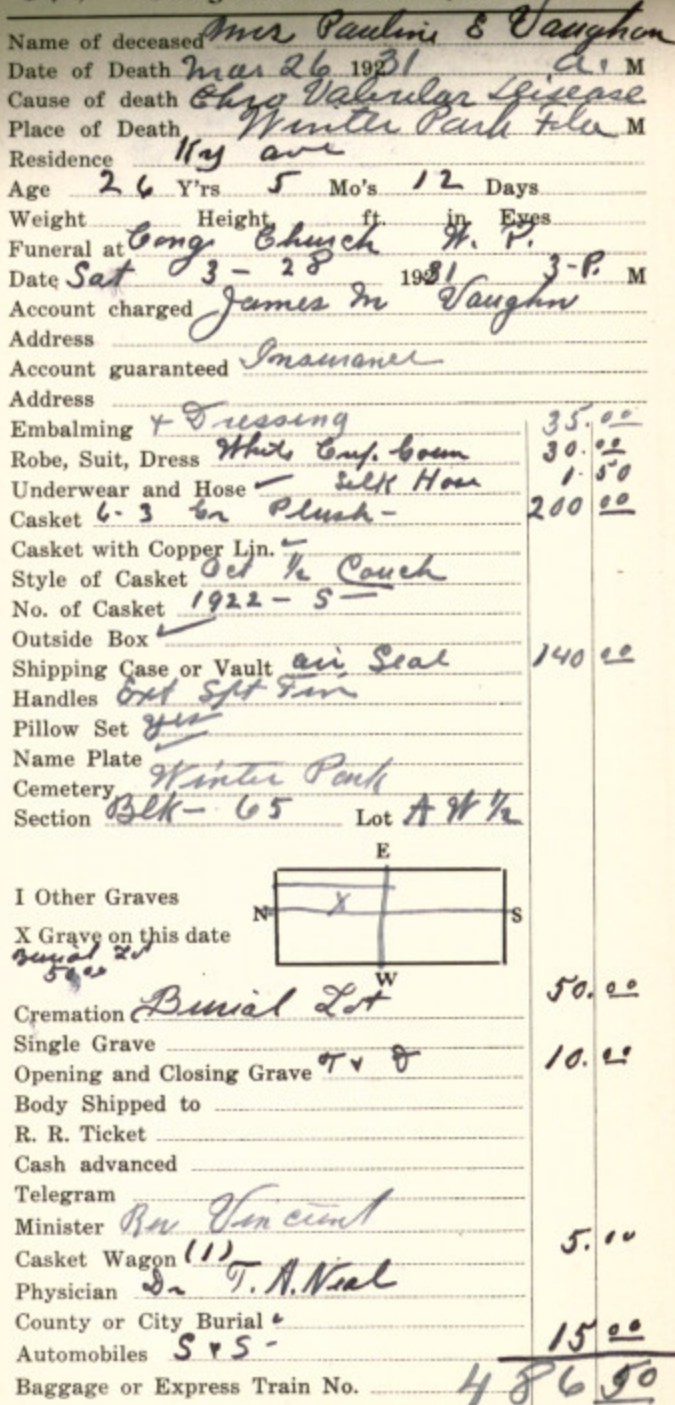 Name of deceased Mrs Pauline E Vaughan
Date of Death Mar 26 1931 a. M
Cause of death Chro Valvular Disease
Place of Death Winter Park Fla M
Residence Ky ave
Age 26 Y'rs 5 Mo's 12 Days
Weight Height ft. in Eyes
Funeral at Cong Church W. P.
Date Sat 3-28 1931 3-P. M
Account charged James M Vaughn
Address
Account guaranteed Insurance
Address
Embalming + Dressing 35.00
Robe, Suit, Dress White 30.00
Underwear and Hose Silk Hose 1.50
Casket 6-3 Plush - 200 00
Casket with Copper Lin.
Style of Casket Oct 1/2 Couch
No. of Casket 1922 - S
Outside Box
Shipping Case or Vault air Seal 140 00
Handles Ext
Pillow Set yes
Name Plate
Cemetery Winter Park
Section Blk - 65 Lot A W 1/2
E
I Other Graves
N S
X
X Grave on this date
Burial Lot
50.00
W
Cremation Burial Lot 50.00
Single Grave
Opening and Closing Grave 10.00
Body Shipped to
R. R. Ticket
Cash advanced
Telegram
Minister Rev Vincent
Casket Wagon (1) 5.00
Physician Dr T. A. Neal
County or City Burial
Automobiles S & S - 15 00
Baggage or Express Train No. 486 50